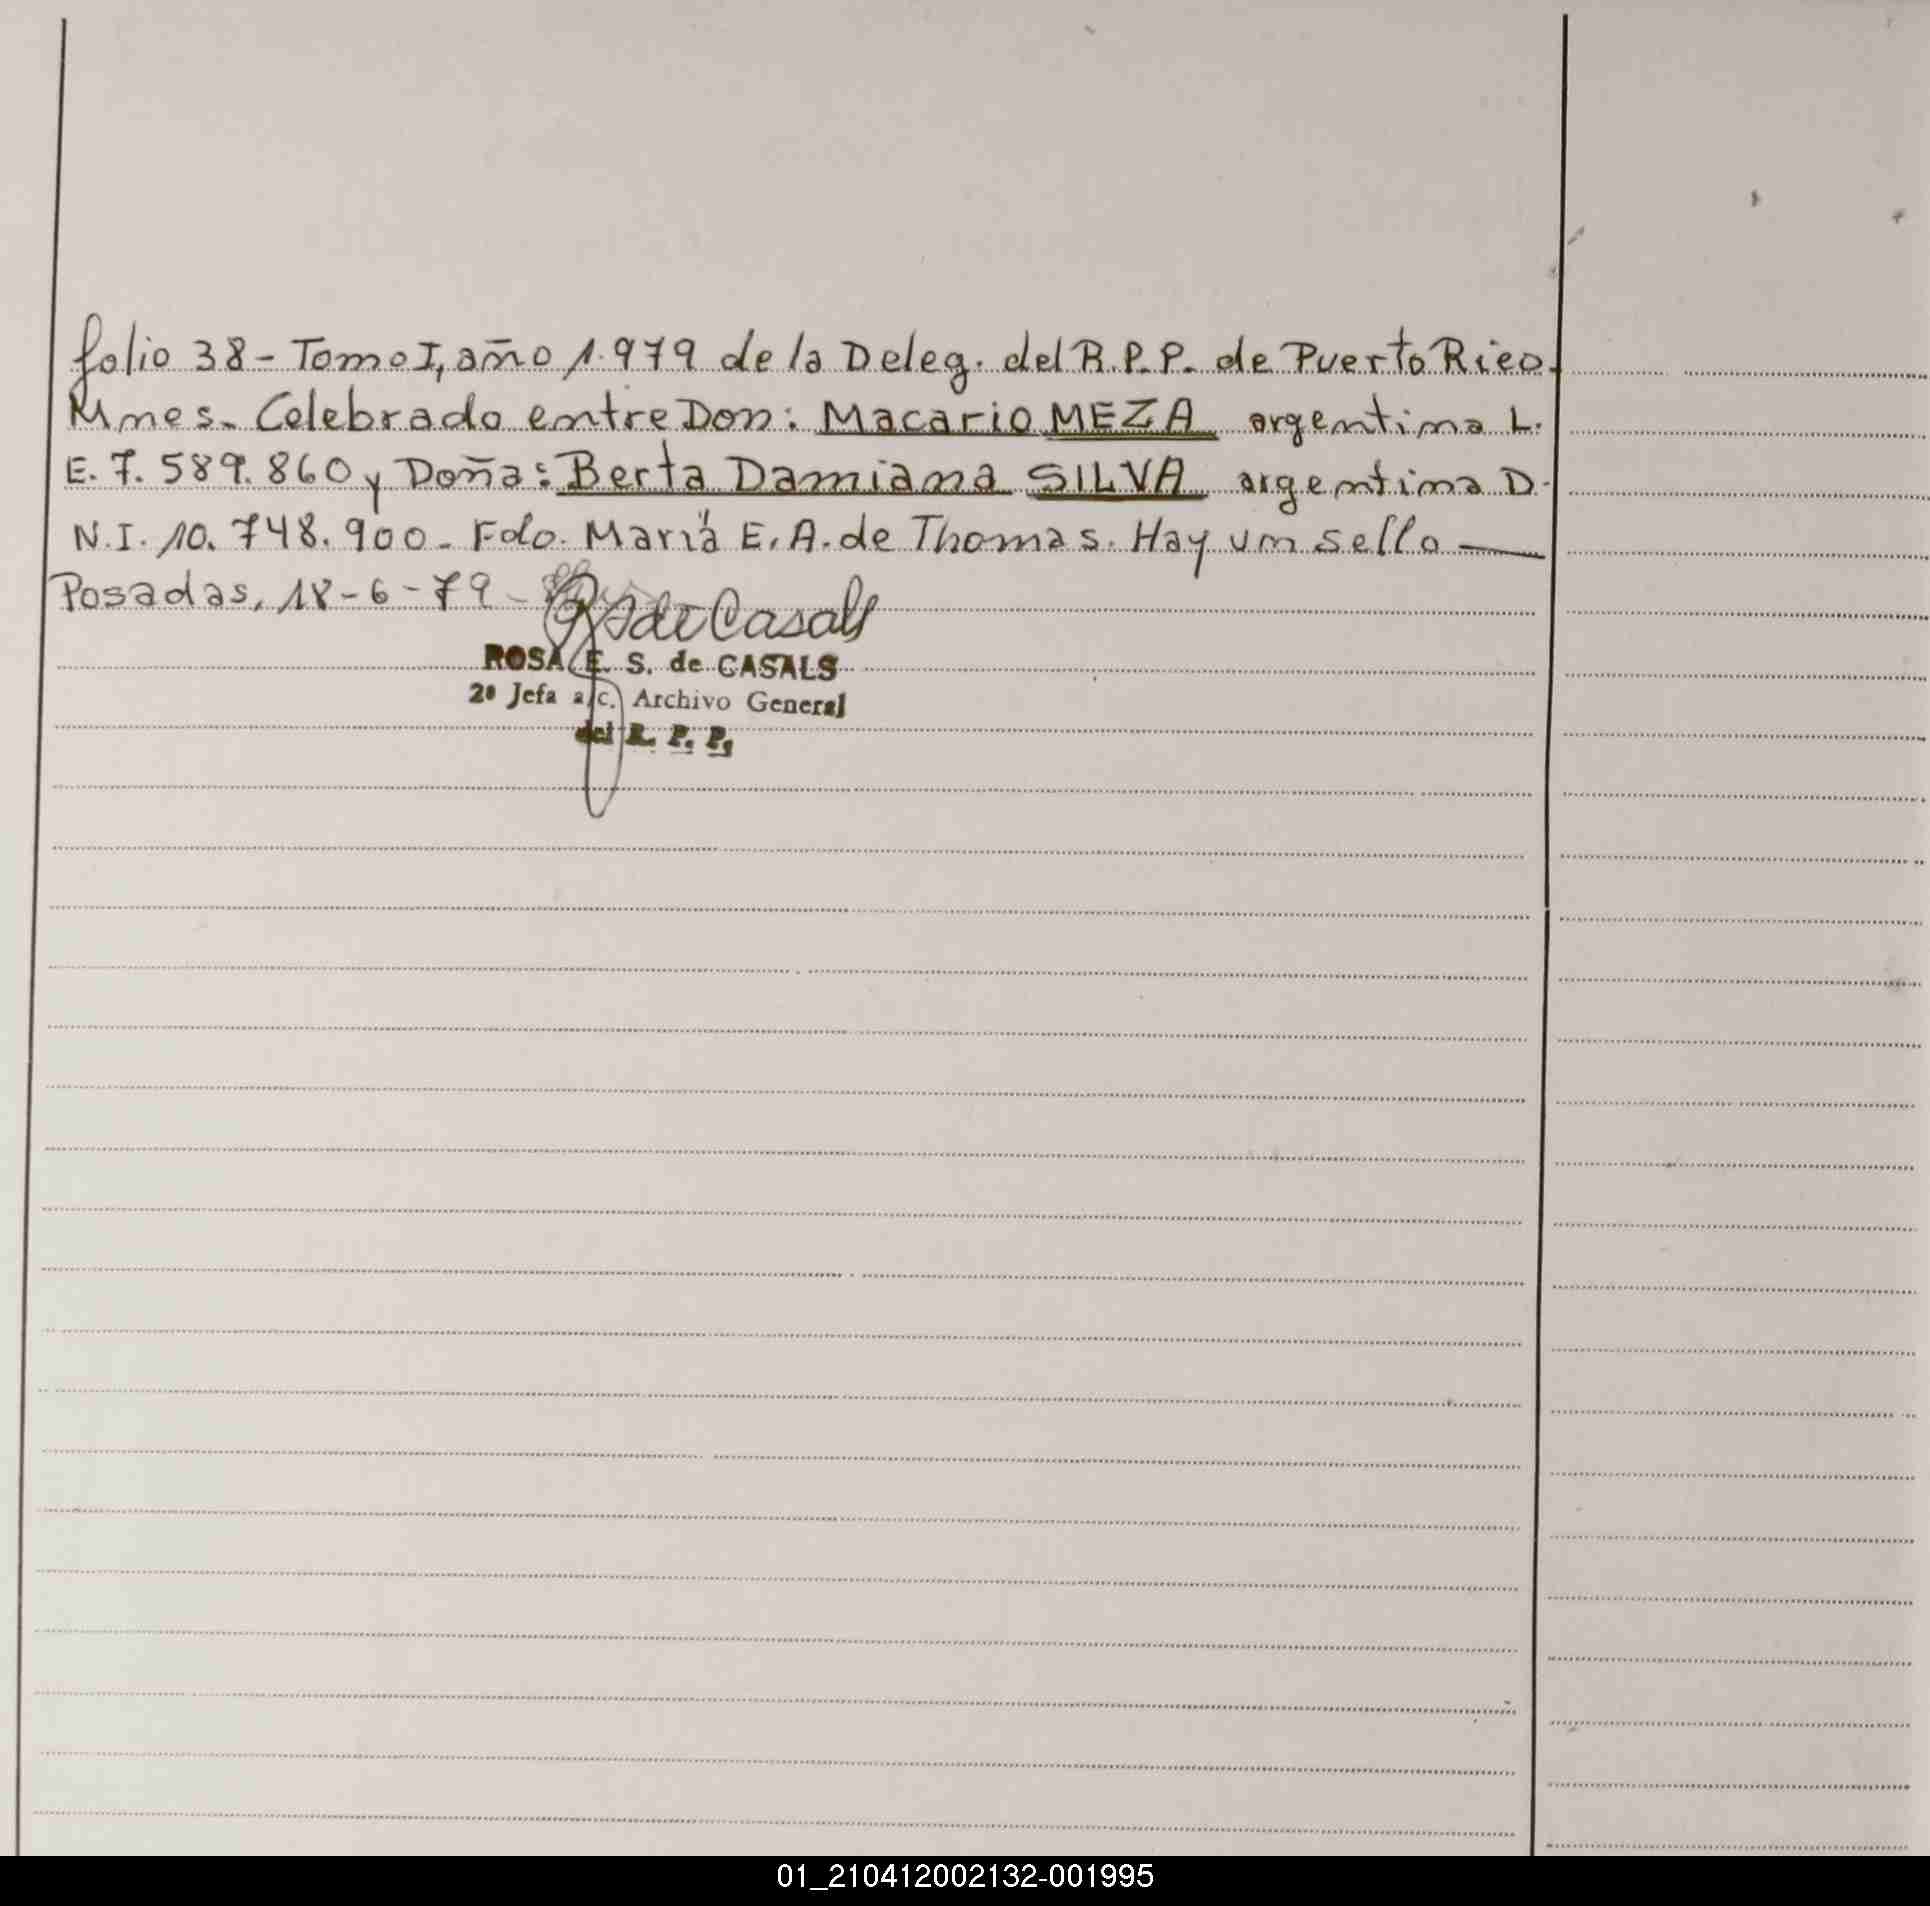 folio 38 - Tomo I, año 1.979 de la Deleg. del R.P.P. de Puerto Rico.
Mnes. Celebrado entre Don: Macario MEZA argentino L.
E. 7.589.860 y Doña: Berta Damiana SILVA argentina D.
N.I. 10.748.900. Fdo. María E. A. de Thomas. Hay un sello —
Posadas, 18-6-79 -
de Casals
ROSA E. S. de CASALS
2º Jefa a/c. Archivo General
del R. P. P.
01_210412002132-001995